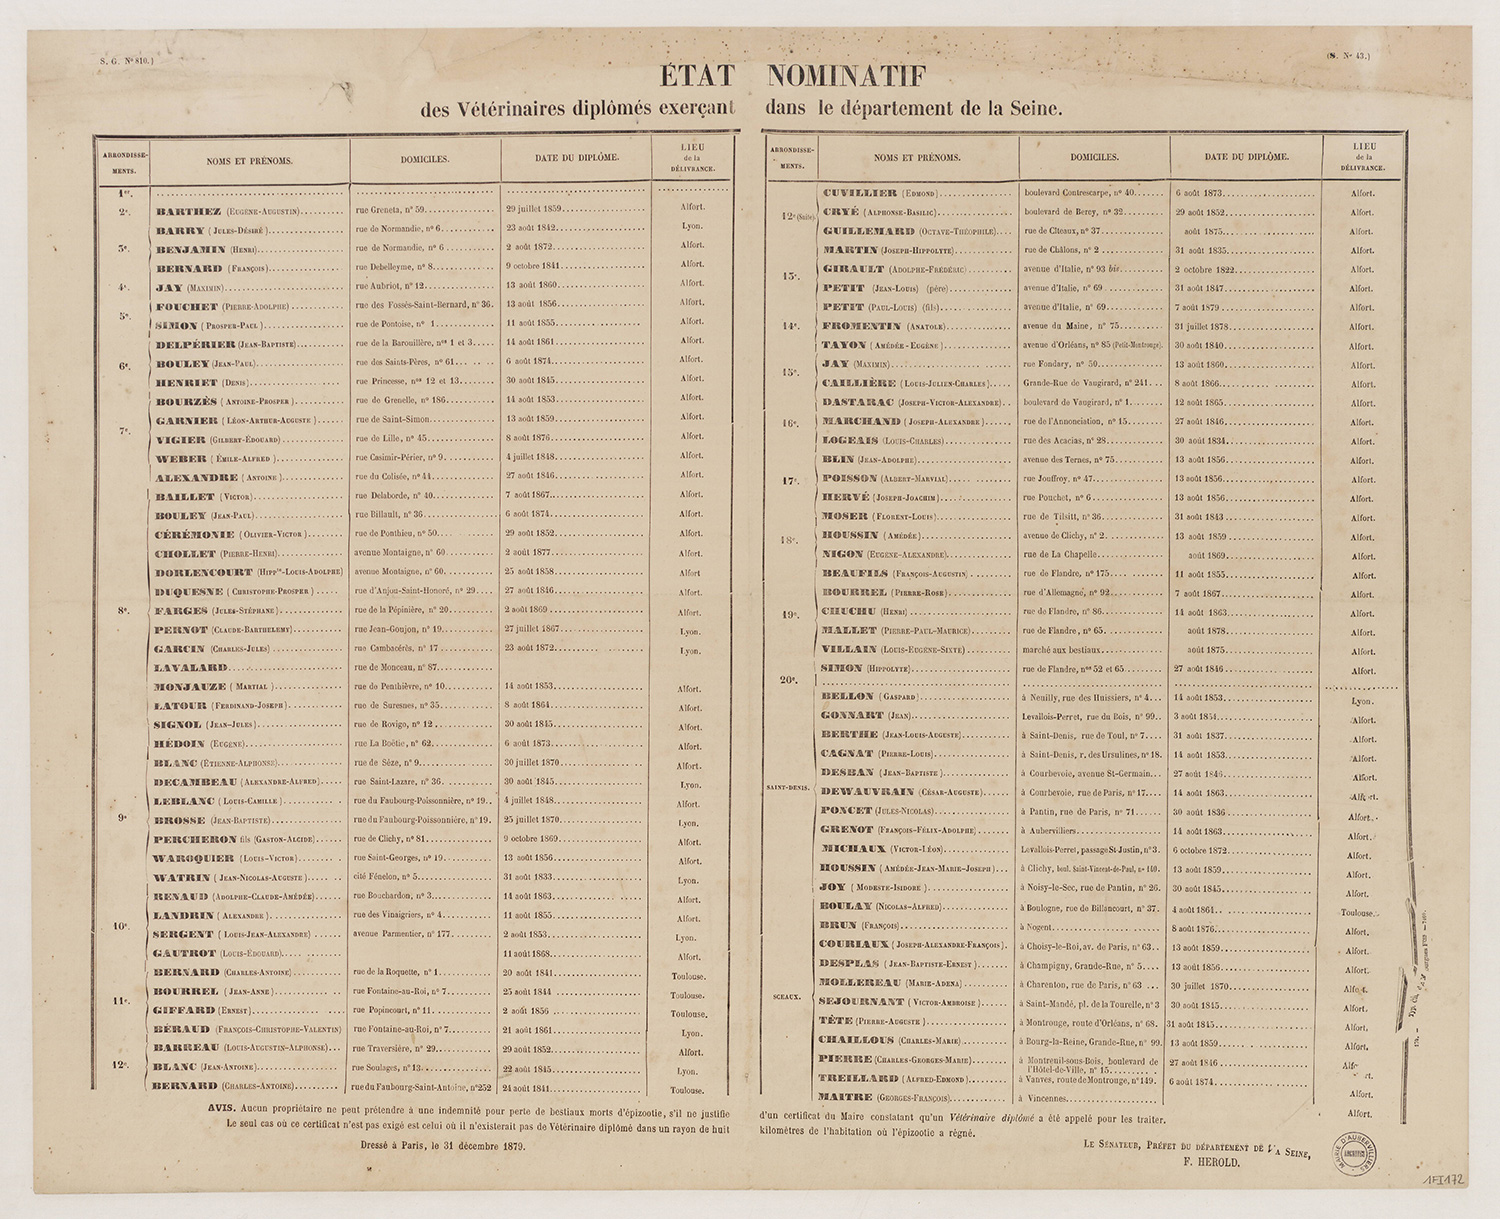 S. G. Nº 810.)
(S. Nº 43.)
ÉTAT NOMINATIF
des Vétérinaires diplômés exerçant dans le département de la Seine.
ARRONDISSE-MENTS. NOMS ET PRÉNOMS. DOMICILES. DATE DU DIPLÔME. LIEU de la DÉLIVRANCE.
1er.
2e. BARTHEZ (Eugène-Augustin) rue Greneta, nº 59 29 juillet 1859 Alfort.
BARRY (Jules-Désiré) rue de Normandie, nº 6 23 août 1842 Lyon.
3e. BENJAMIN (Henri) rue de Normandie, nº 6 2 août 1872 Alfort.
BERNARD (François) rue Debelleyme, nº 8 9 octobre 1841 Alfort.
4e. JAY (Maximin) rue Aubriot, nº 12 13 août 1860 Alfort.
FOUCHET (Pierre-Adolphe) rue des Fossés-Saint-Bernard, nº 36. 13 août 1856 Alfort.
5e.
SIMON (Prosper-Paul) rue de Pontoise, nº 1 11 août 1855 Alfort.
DELPÉRIER (Jean-Baptiste) rue de la Barouillère, nos 1 et 3 14 août 1861 Alfort.
6e. BOULEY (Jean-Paul) rue des Saints-Pères, nº 61 6 août 1874 Alfort.
HENRIET (Denis) rue Princesse, nos 12 et 13 30 août 1845 Alfort.
BOURZÈS (Antoine-Prosper) rue de Grenelle, nº 186 14 août 1853 Alfort.
GARNIER (Léon-Arthur-Auguste) rue de Saint-Simon 13 août 1859 Alfort.
7e.
VIGIER (Gilbert-Édouard) rue de Lille, nº 45 8 août 1876 Alfort.
WEBER (Émile-Alfred) rue Casimir-Périer, nº 9 4 juillet 1848 Alfort.
ALEXANDRE (Antoine) rue du Colisée, nº 44 27 août 1846 Alfort.
BAILLET (Victor) rue Delaborde, nº 40 7 août 1867 Alfort.
BOULEY (Jean-Paul) rue Billault, nº 36 6 août 1874 Alfort.
CÉRÉMONIE (Olivier-Victor) rue de Ponthieu, nº 50 29 août 1852 Alfort.
CHOLLET (Pierre-Henri) avenue Montaigne, nº 60 2 août 1877 Alfort.
DORLENCOURT (Hippte-Louis-Adolphe) avenue Montaigne, nº 60 25 août 1858 Alfort
DUQUESNE (Christophe-Prosper) rue d'Anjou-Saint-Honoré, nº 29 27 août 1846 Alfort.
8e. FARGES (Jules-Stéphane) rue de la Pépinière, nº 20 2 août 1869 Alfort.
PERNOT (Claude-Barthelemy) rue Jean-Goujon, nº 19 27 juillet 1867 Lyon.
GARCIN (Charles-Jules) rue Cambacérès, nº 17 23 août 1872 Lyon.
LAVALARD rue de Monceau, nº 87
MONJAUZE (Martial) rue de Penthièvre, nº 10 14 août 1853 Alfort.
LATOUR (Ferdinand-Joseph) rue de Suresnes, nº 35 8 août 1864 Alfort.
SIGNOL (Jean-Jules) rue de Rovigo, nº 12 30 août 1845 Alfort.
HÉDOIN (Eugène) rue La Boëtie, nº 62 6 août 1873 Alfort.
BLANC (Étienne-Alphonse) rue de Sèze, nº 9 30 juillet 1870 Alfort.
DECAMBEAU (Alexandre-Alfred) rue Saint-Lazare, nº 36 30 août 1845 Lyon.
LEBLANC (Louis-Camille) rue du Faubourg-Poissonnière, nº 19 4 juillet 1848 Alfort.
9e BROSSE (Jean-Baptiste) rue du Faubourg-Poissonnière, nº 19. 25 juillet 1870 Lyon.
PERCHERON fils (Gaston-Alcide) rue de Clichy, nº 81 9 octobre 1869 Alfort.
WAROQUIER (Louis-Victor) rue Saint-Georges, nº 19 13 août 1856 Alfort.
WATRIN (Jean-Nicolas-Auguste) cité Fénelon, nº 5 31 août 1833 Lyon.
RENAUD (Adolphe-Claude-Amédée) rue Bouchardon, nº 3 14 août 1863 Alfort.
LANDRIN (Alexandre) rue des Vinaigriers, nº 4 11 août 1855 Alfort.
10e.
SERGENT (Louis-Jean-Alexandre) avenue Parmentier, nº 177 2 août 1853 Lyon.
GAUTROT (Louis-Édouard) 11 août 1868 Alfort.
BERNARD (Charles-Antoine) rue de la Roquette, nº 1 20 août 1841 Toulouse.
BOURREL (Jean-Anne) rue Fontaine-au-Roi, nº 7 25 août 1844 Toulouse.
11e.
GIFFARD (Ernest) rue Popincourt, nº 11 2 août 1856 Toulouse.
BÉRAUD (François-Christophe-Valentin) rue Fontaine-au-Roi, nº 7 21 août 1861 Lyon.
BARREAU (Louis-Augustin-Alphonse) rue Traversière, nº 29 29 août 1852 Alfort.
12e. BLANC (Jean-Antoine) rue Soulages, nº 13 22 août 1845 Lyon.
BERNARD (Charles-Antoine) rue du Faubourg-Saint-Antoine, nº 252 24 août 1841 Toulouse.
ARRONDISSE-MENTS. NOMS ET PRÉNOMS. DOMICILES. DATE DU DIPLÔME. LIEU de la DÉLIVRANCE.
CUVILLIER (Edmond) boulevard Contrescarpe, nº 40 6 août 1873 Alfort.
12e (Suite). CRYÉ (Alphonse-Basilic) boulevard de Bercy, nº 32 29 août 1852 Alfort.
GUILLEMARD (Octave-Théophile) rue de Cîteaux, nº 37 août 1875 Alfort.
MARTIN (Joseph-Hippolyte) rue de Châlons, nº 2 31 août 1835 Alfort.
13e. GIRAULT (Adolphe-Frédéric) avenue d'Italie, nº 93 bis 2 octobre 1822 Alfort.
PETIT (Jean-Louis) (père) avenue d'Italie, nº 69 31 août 1847 Alfort.
PETIT (Paul-Louis) (fils) avenue d'Italie, nº 69 7 août 1879 Alfort.
14e. FROMENTIN (Anatole) avenue du Maine, nº 75 31 juillet 1878 Alfort.
TAYON (Amédée-Eugène) avenue d'Orléans, nº 85 (Petit-Montrouge). 30 août 1840 Alfort.
JAY (Maximin) rue Fondary, nº 50 13 août 1860 Alfort.
15e.
CAILLIÈRE (Louis-Julien-Charles) Grande-Rue de Vaugirard, nº 241 8 août 1866 Alfort.
DASTARAC (Joseph-Victor-Alexandre) boulevard de Vaugirard, nº 1 12 août 1865 Alfort.
16e. MARCHAND (Joseph-Alexandre) rue de l'Annonciation, nº 15 27 août 1846 Alfort.
LOGEAIS (Louis-Charles) rue des Acacias, nº 28 30 août 1834 Alfort.
BLIN (Jean-Adolphe) avenue des Ternes, nº 75 13 août 1856 Alfort.
17e. POISSON (Albert-Marvial) rue Jouffroy, nº 47 13 août 1856 Alfort.
HERVÉ (Joseph-Joachim) rue Pouchet, nº 6 13 août 1856 Alfort.
MOSER (Florent-Louis) rue de Tilsitt, nº 36 31 août 1843 Alfort.
18e. HOUSSIN (Amédée) avenue de Clichy, nº 2 13 août 1859 Alfort.
NIGON (Eugène-Alexandre) rue de La Chapelle août 1869 Alfort.
BEAUFILS (François-Augustin) rue de Flandre, nº 175 11 août 1855 Alfort.
BOURREL (Pierre-Rose) rue d'Allemagne, nº 92 7 août 1867 Alfort.
19e. CHUCHU (Henri) rue de Flandre, nº 86 14 août 1863 Alfort.
MALLET (Pierre-Paul-Maurice) rue de Flandre, nº 65 août 1878 Alfort.
VILLAIN (Louis-Eugène-Sixte) marché aux bestiaux août 1875 Alfort.
SIMON (Hippolyte) rue de Flandre, nos 52 et 65 27 août 1846 Alfort.
20e.
BELLON (Gaspard) à Neuilly, rue des Huissiers, nº 4 14 août 1853 Lyon.
GONNART (Jean) Levallois-Perret, rue du Bois, nº 99 3 août 1851 Alfort.
BERTHE (Jean-Louis-Auguste) à Saint-Denis, rue de Toul, nº 7 31 août 1837 Alfort.
CAGNAT (Pierre-Louis) à Saint-Denis, r. des Ursulines, nº 18. 14 août 1853 Alfort.
DESBAN (Jean-Baptiste) à Courbevoie, avenue St-Germain 27 août 1846 Alfort.
SAINT-DENIS. DEWAUVRAIN (César-Auguste) à Courbevoie, rue de Paris, nº 17 14 août 1863 Alfort.
PONCET (Jules-Nicolas) à Pantin, rue de Paris, nº 71 30 août 1836 Alfort.
GRENOT (François-Félix-Adolphe) à Aubervilliers 14 août 1863 Alfort.
MICHAUX (Victor-Léon) Levallois-Perret, passage St-Justin, nº 3. 6 octobre 1872 Alfort.
HOUSSIN (Amédée-Jean-Marie-Joseph) à Clichy, boul. Saint-Vincent-de-Paul, nº 140. 13 août 1859 Alfort.
JOY (Modeste-Isidore) à Noisy-le-Sec, rue de Pantin, nº 26. 30 août 1845 Alfort.
BOULAY (Nicolas-Alfred) à Boulogne, rue de Billancourt, nº 37. 4 août 1864 Toulouse.
BRUN (François) à Nogent 8 août 1876 Alfort.
COURIAUX (Joseph-Alexandre-François). à Choisy-le-Roi, av. de Paris, nº 63 13 août 1859 Alfort.
DESPLAS (Jean-Baptiste-Ernest) à Champigny, Grande-Rue, nº 5 13 août 1856 Alfort.
MOLLEREAU (Marie-Adena) à Charenton, rue de Paris, nº 63 30 juillet 1870 Alfort.
SCEAUX. SEJOURNANT (Victor-Ambroise) à Saint-Mandé, pl. de la Tourelle, nº 3 30 août 1845 Alfort.
TÊTE (Pierre-Auguste) à Montrouge, route d'Orléans, nº 68. 31 août 1845 Alfort.
CHAILLOUS (Charles-Marie) à Bourg-la-Reine, Grande-Rue, nº 99. 13 août 1859 Alfort.
PIERRE (Charles-Georges-Marie) à Montreuil-sous-Bois, boulevard de l'Hôtel-de-Ville, nº 15 27 août 1846 Alfort.
TREILLARD (Alfred-Edmond) à Vanves, route de Montrouge, nº 149. 6 août 1874 Alfort.
MAITRE (Georges-François) à Vincennes Alfort.
AVIS. Aucun propriétaire ne peut prétendre à une indemnité pour perte de bestiaux morts d'épizootie, s'il ne justifie d'un certificat du Maire constatant qu'un Vétérinaire diplômé a été appelé pour les traiter.
Le seul cas où ce certificat n'est pas exigé est celui où il n'existerait pas de Vétérinaire diplômé dans un rayon de huit kilomètres de l'habitation où l'épizootie a régné.
Dressé à Paris, le 31 décembre 1879.
Le Sénateur, Préfet du département de la Seine,
F. HEROLD.
MAIRIE D'AUBERVILLIERS
ARCHIVES
1FI172